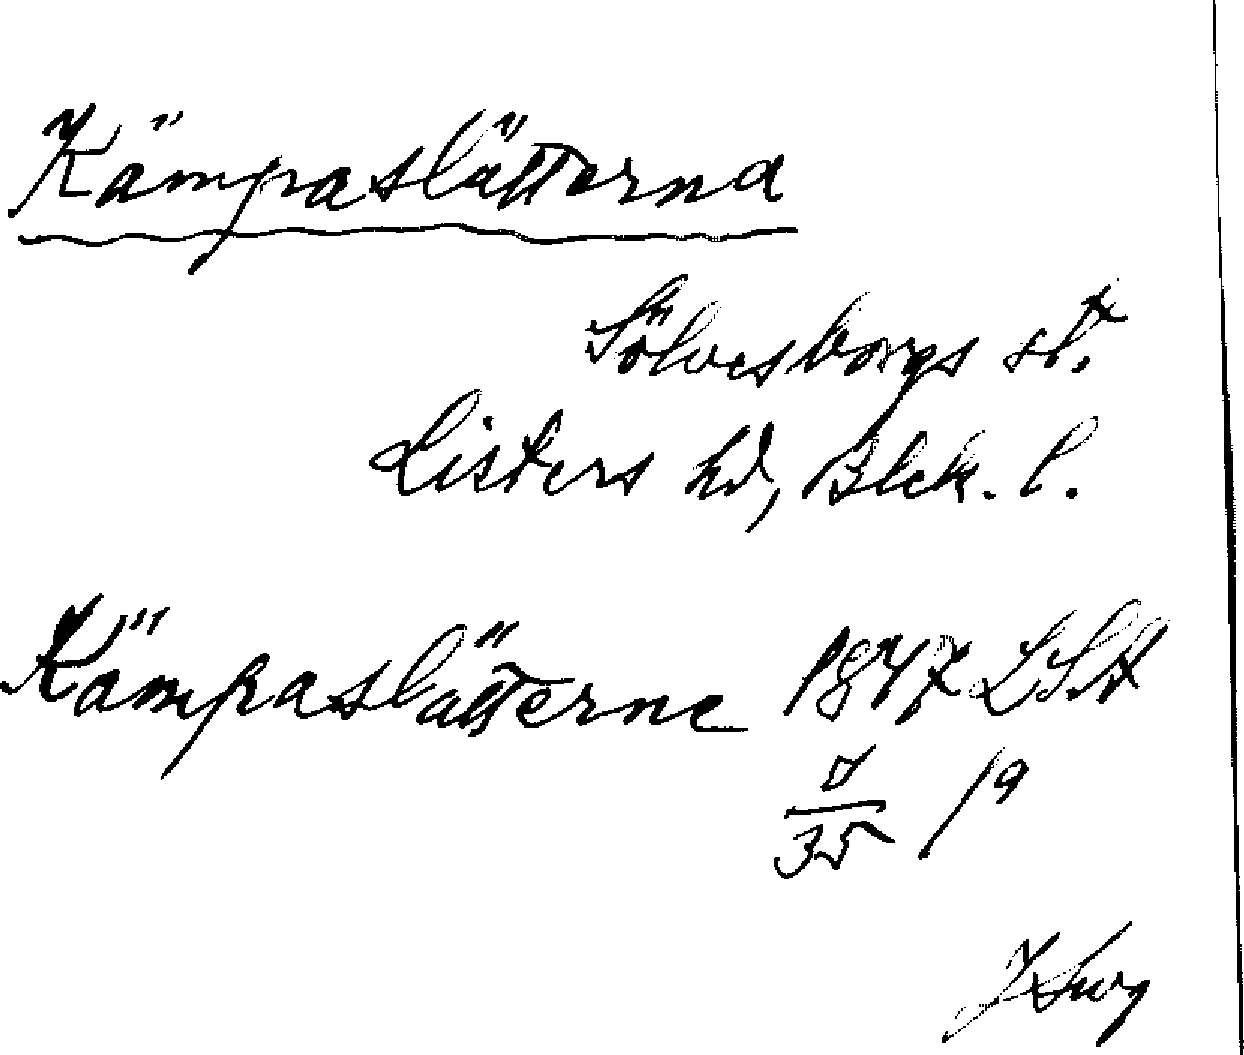 Kämpaslätterna
Sölvesborgs st.
Listers hd, Blek. l.
Kämpaslätterne 1847 LSA
35 19